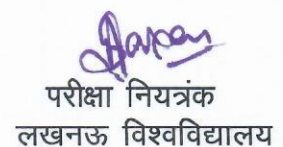 परीक्षा नियत्रंक
लखनऊ विश्वविद्यालय